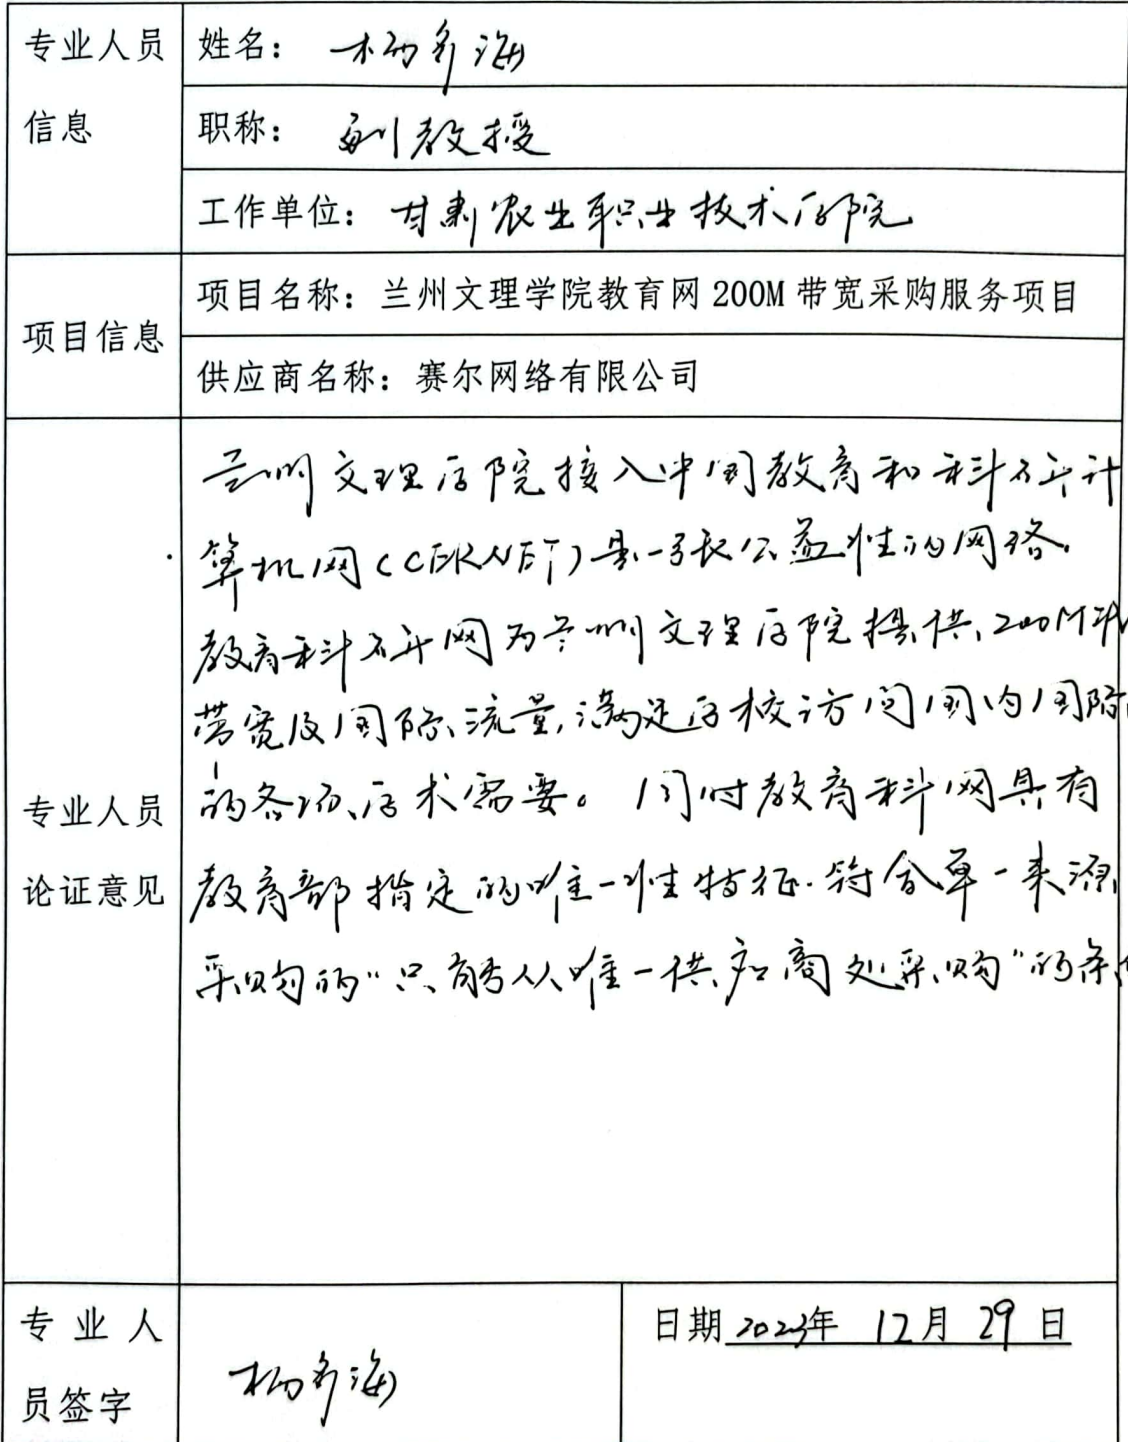 专业人员
信息
姓名：
职称：副教授
工作单位：甘肃农业职业技术学院
项目信息
项目名称：兰州文理学院教育网 200M 带宽采购服务项目
供应商名称：赛尔网络有限公司
专业人员
论证意见
兰州文理学院接入中国教育和科研计
算机网(CERNET)是一张公益性的网络.
教育科研网为兰州文理学院提供200M
带宽及国际流量,满足学校访问国内国际
的各项学术需要。同时教育科网具有
教育部指定的唯一性特征.符合单一来源
采购的“只能从唯一供应商处采购”的条件
专业人
员签字
日期 2023年 12月 29日